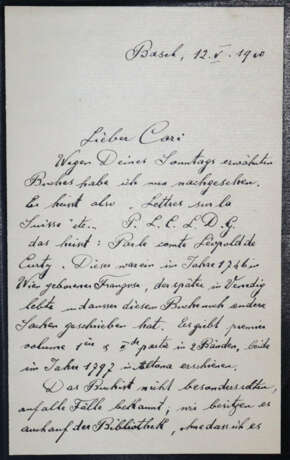 Basel, 12. V. 1910
Lieber Carl
Wegen Deines Sonntags erwähnten
Buches habe ich nun nachgesehen.
Es heisst also „Lettres sur la
Suisse" etc. P. L. C. L. D. C.
das heisst: Par le comte Léopold de
Curty. Dieser war ein im Jahre 1746 in
Wien geborener Franzose, der später in Venedig
lebte u. ausser diesem Buche noch andere
Sachen geschrieben hat. Es gibt premier
volume 1ère & IIde partie in 2 Bänden, beide
im Jahre 1797 in Altona erschienen.
Das Buch ist nicht besonders selten,
auf alle Fälle bekannt; wir besitzen es
auch auf der Bibliothek, ohne dass ich es